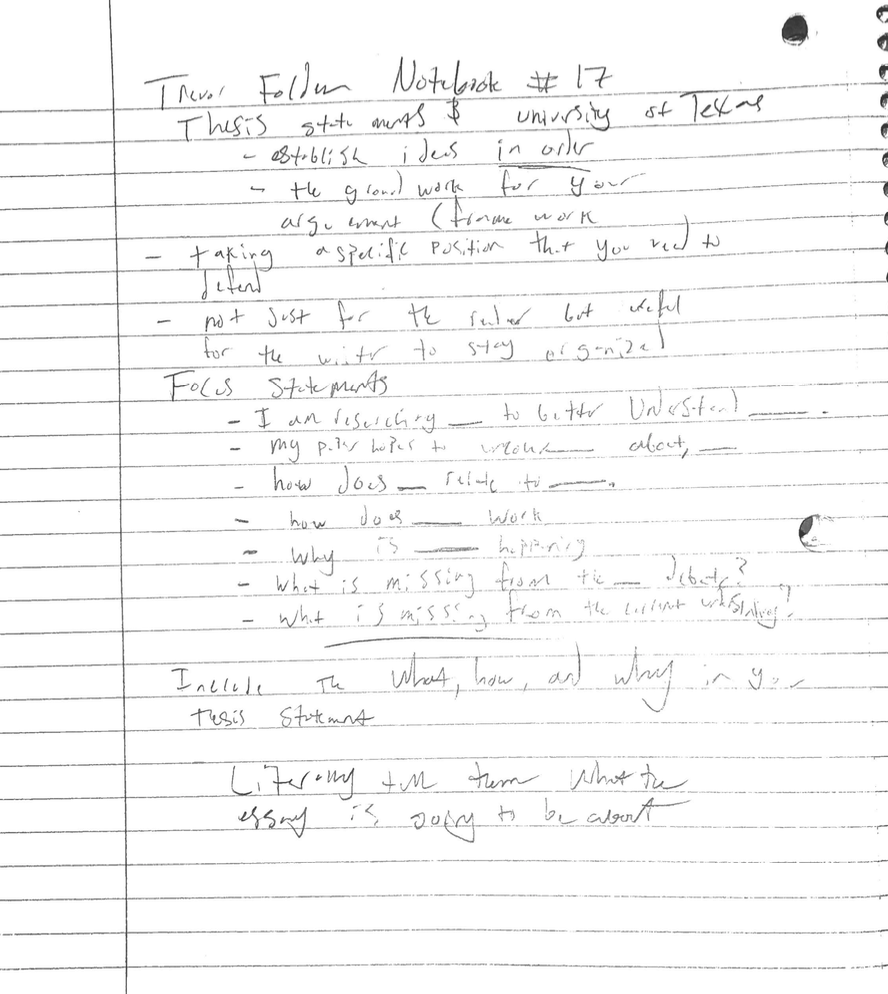 Trevor Folden Notebook # 17
Thesis statements $ university of Texas
- establish ideas in order
- the ground work for your
argument (frame work
- taking a specific position that you need to
defend
- not just for the reader but useful
for the writer to stay organized
Focus Statements
- I am researching ___ to better Understand ___.
- my paper hopes to ___ about, ___
- how does ___ relate to ___.
- how does ___ work
- why is ___ happening
- What is missing from the ___ debate?
- What is missing from the current understanding?
Include the What, how, and why in your
thesis statement
Literally tell them what the
essay is going to be about